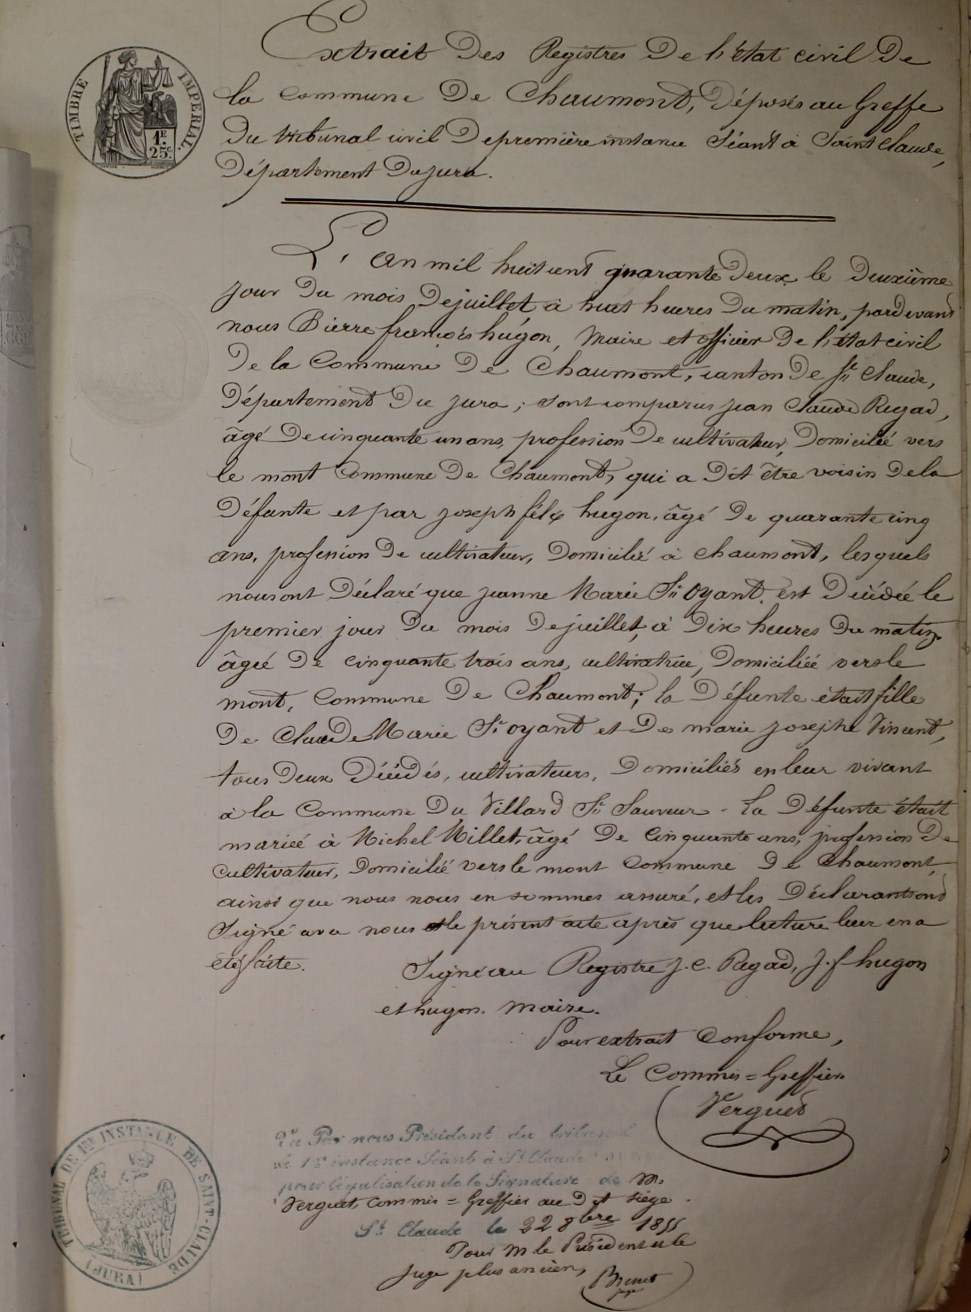 Extrait Des Registres De l'état civil De
la Commune De Chaumont, Déposés au Greffe
Du tribunal civil De première instance Séant à Saint Claude,
Département Du Jura.
TIMBRE IMPERIAL.
1F
25c.
L'an mil huit cent quarante Deux le Deuxième
jour Du mois De juillet à huit heures Du matin, pardevant
nous Pierre françois hugon, Maire et officier De l'état civil
De la Commune De Chaumont, canton De St Claude,
Département Du jura, sont comparus jean Claude Regad,
âgé De cinquante un ans, profession De cultivateur, Domicilié vers
le mont Commune De Chaumont, qui a Dit être voisin De la
Défunte et par joseph félix hugon, âgé De quarante cinq
ans, profession De cultivateur, Domicilié à Chaumont, lesquels
nous ont Déclaré que jeanne Marie St Oyant est Décédée le
premier jour Du mois De juillet, à Dix heures Du matin,
âgée De cinquante trois ans, cultivatrice, Domiciliée vers le
mont, Commune De Chaumont; la Défunte était fille
De Claude Marie St oyant et De marie josephe Vincent,
tous Deux Décédés, cultivateurs, Domiciliés en leur vivant
à la Commune Du Villard St Sauveur - La Défunte était
mariée à Michel Millet, âgé De Cinquante ans, profession De
cultivateur, Domicilié vers le mont Commune De Chaumont,
ainsi que nous nous en sommes assuré, et les Déclarants ont
Signé avec nous le présent acte après que lecture leur en a
été faite.
Signé au Registre J. C. Regad, J. f hugon
et hugon. Maire.
Pour extrait Conforme,
Le Commis = Greffier
Verguet
Vu Par nous Président du tribunal
de 1re instance Séant à St Claude
pour légalisation de la Signature de M.
Verguet, Commis = Greffier au Dit siège.
St Claude le 22 8bre 1855
Pour M le Président et le
Juge plus ancien,
TRIBUNAL DE 1ERE INSTANCE DE SAINT-CLAUDE
(JURA)